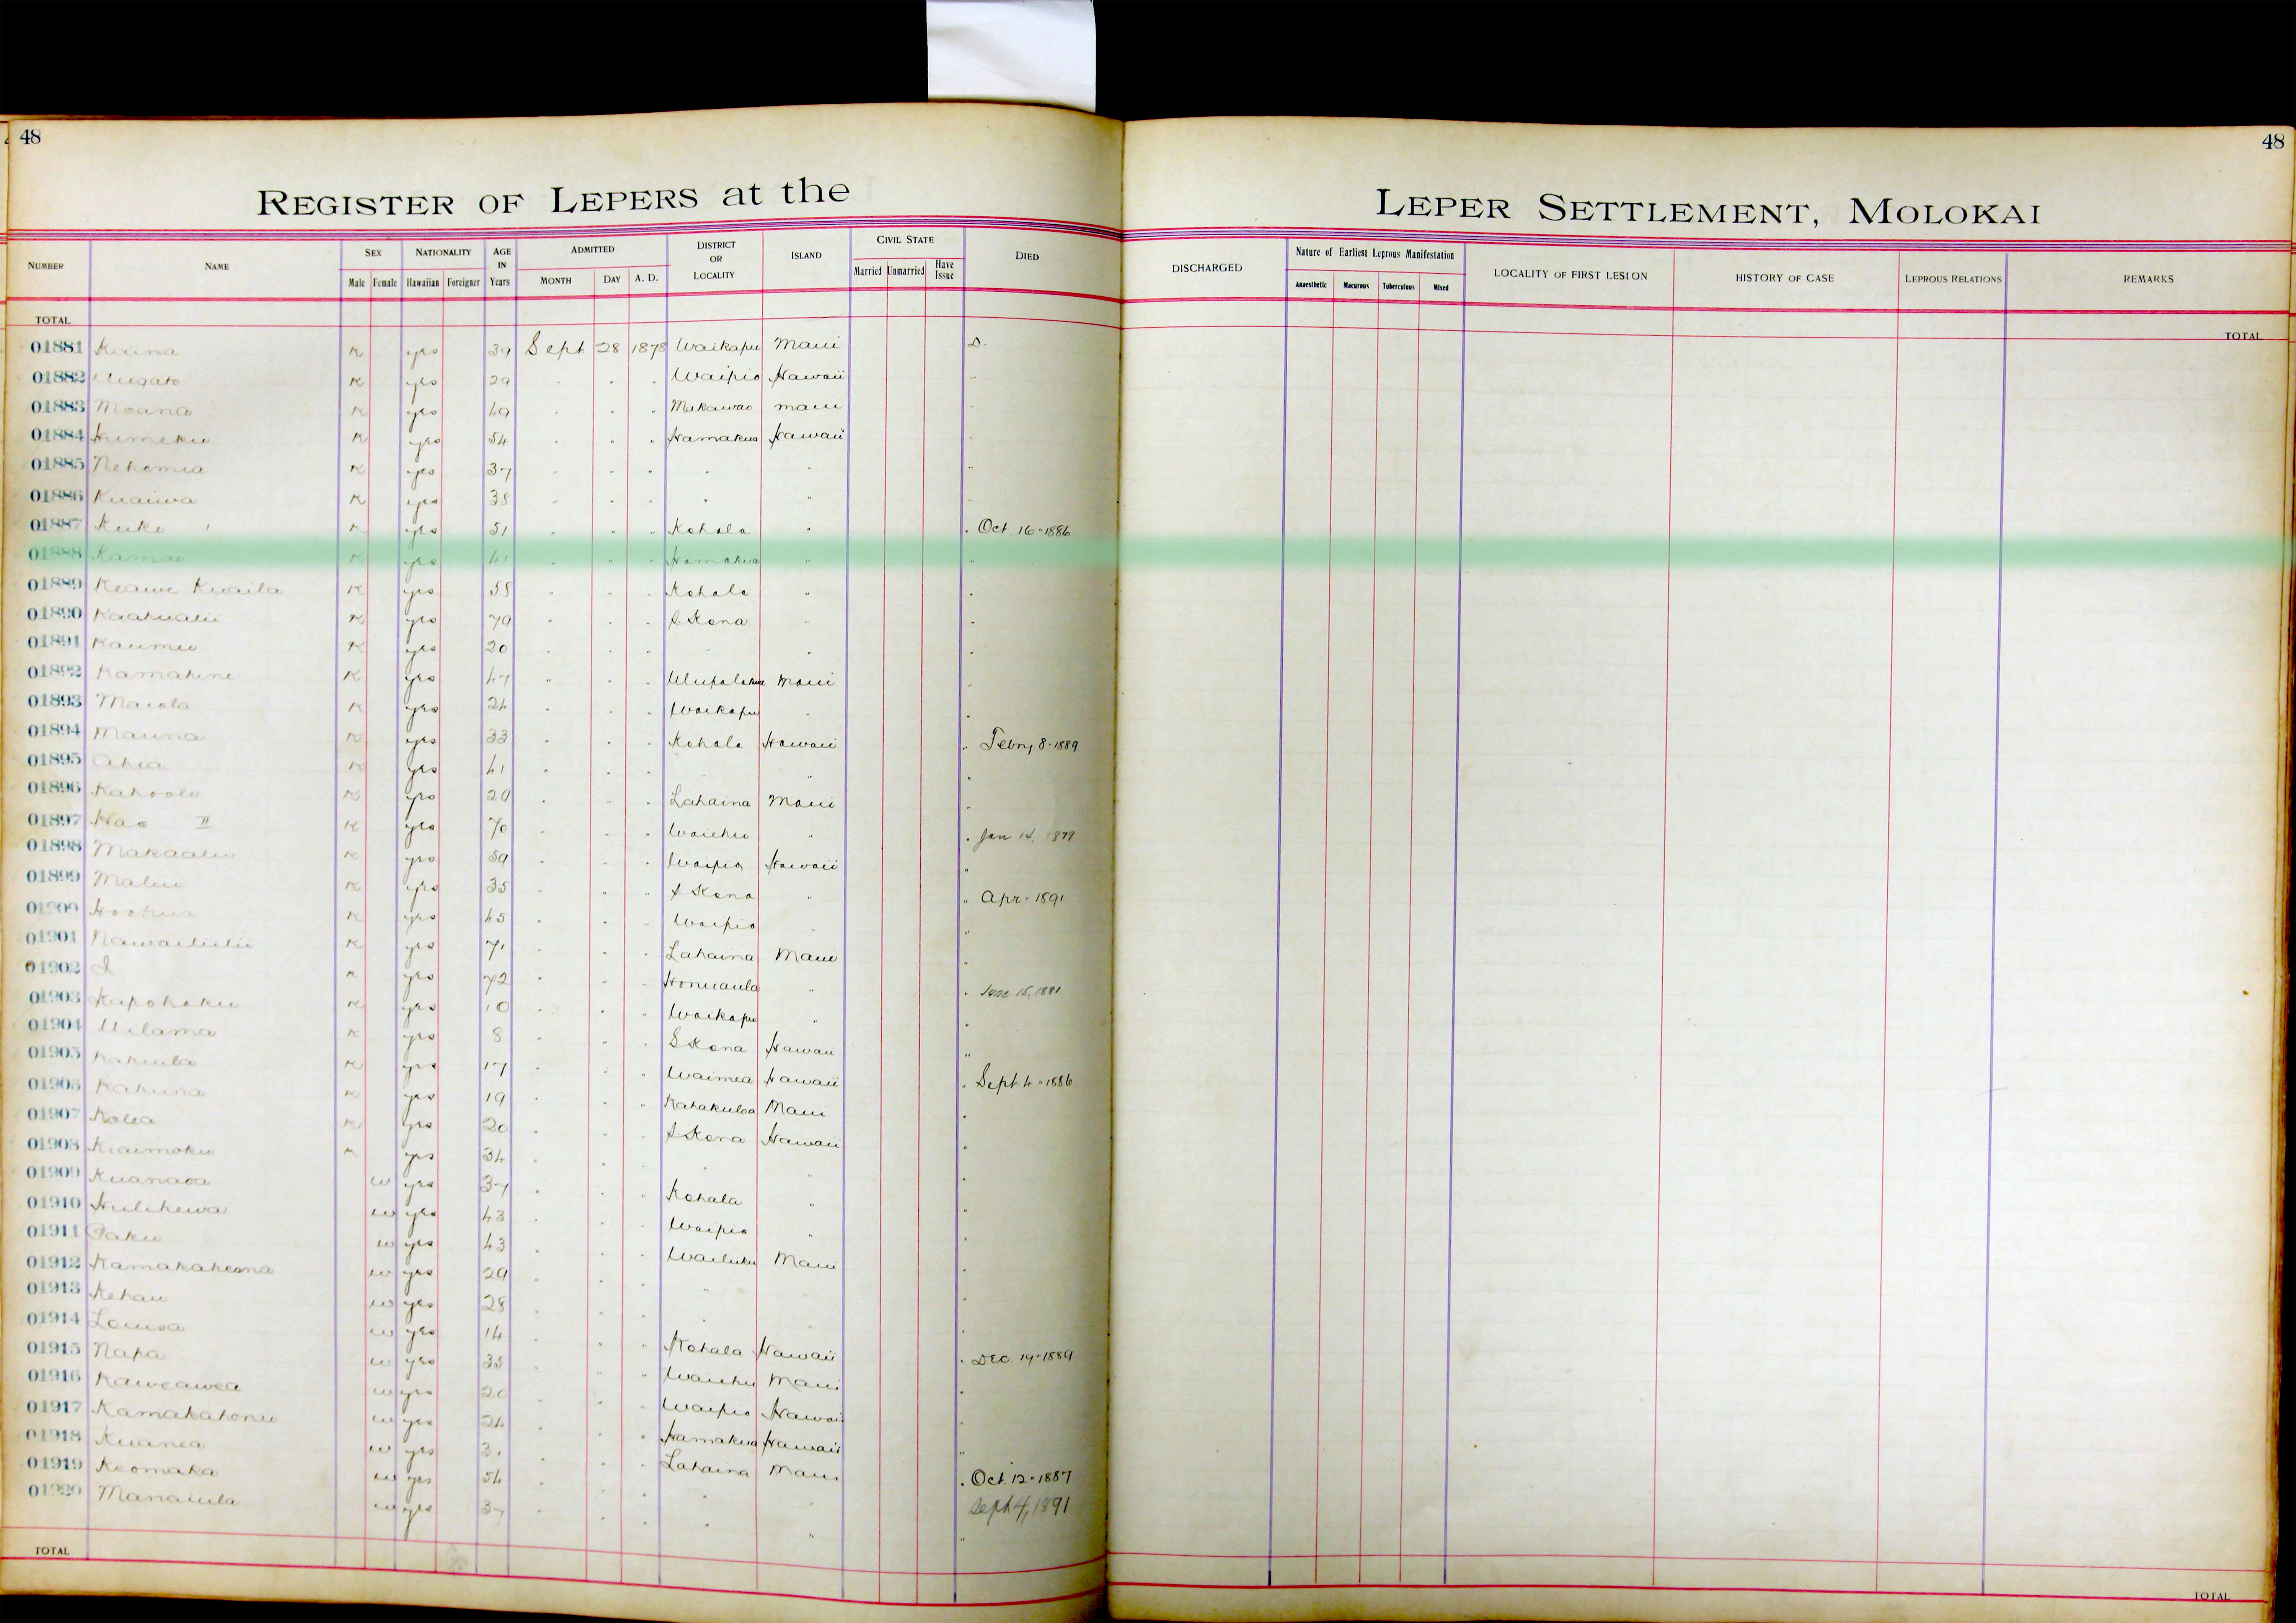 48
48
REGISTER OF LEPERS at the
LEPER SETTLEMENT, MOLOKAI
NUMBER NAME SEX Male Female NATIONALITY Hawaiian Foreigner AGE IN Years ADMITTED MONTH DAY A. D. DISTRICT OR LOCALITY ISLAND CIVIL STATE Married Unmarried Have Issue DIED
DISCHARGED Nature of Earliest Leprous Manifestation Anaesthetic Macurous Tuberculous Mixed LOCALITY OF FIRST LESION HISTORY OF CASE LEPROUS RELATIONS REMARKS
TOTAL
TOTAL
01881 K yes 39 Sept 28 1878 Waikapu Maui D.
01882 K yes 29 " " " Waipio Hawaii "
01883 Moana K yes 49 " " " Makawao Maui "
01884 Humeku K yes 54 " " " Hamakua Hawaii "
01885 Nehemia K yes 37 " " " " " "
01886 Kuaiwa K yes 38 " " " " " "
01887 Kuke K yes 51 " " " Kohala " " Oct. 16 - 1886
01888 Kamae K yes 41 " " " Hamakua " "
01889 Keawe Kuaila K yes 58 " " " Kohala " "
01890 Kaahualii K yes 79 " " " S Kona " "
01891 Kaumu K yes 20 " " " " " "
01892 Kamahine K yes 47 " " " Ulupalakua Maui "
01893 Maiola K yes 24 " " " Waikapu " "
01894 Mauna K yes 33 " " " Kohala Hawaii " Febry 8 - 1889
01895 Ahia K yes 41 " " " " " "
01896 Kahoolo K yes 29 " " " Lahaina Maui "
01897 Hao II K yes 70 " " " Waiehu " " Jan 14, 1879
01898 Makaalu K yes 59 " " " Waipio Hawaii "
01899 Malu K yes 35 " " " S Kona " " Apr - 1891
01900 Hoohua K yes 45 " " " Waipio " "
01901 Nawailiilii K yes 71 " " " Lahaina Maui "
01902 I K yes 72 " " " Honuaula " " June 15, 1881
01903 Kapohaku K yes 10 " " " Waikapu " "
01904 Uilama K yes 8 " " " S Kona Hawaii "
01905 Kahuila K yes 17 " " " Waimea Hawaii " Sept. 4 - 1886
01906 Kahuna K yes 19 " " " Kahakuloa Maui "
01907 Kolea K yes 20 " " " S Kona Hawaii "
01908 Kiaimoku K yes 34 " " " " " "
01909 Kuanaoa w yes 37 " " " Kohala " "
01910 Hulihewa w yes 43 " " " Waipio " "
01911 Paku w yes 43 " " " Wailuku Maui "
01912 Kamakaheana w yes 29 " " " " "
01913 Kehau w yes 28 " " " " " "
01914 Louisa w yes 14 " " " Kohala Hawaii " Dec. 19 - 1889
01915 Napa w yes 35 " " " Waiehu Maui "
01916 Kaweawea w yes 20 " " " Waipio Hawaii "
01917 Kamakahonu w yes 24 " " " Hamakua Hawaii "
01918 Kuanea w yes 31 " " " Lahaina Maui " Oct 12 - 1887
01919 Keomaka w yes 54 " " " " " Sept 4, 1891
01920 Manaiula w yes 37 " " " " " "
TOTAL
TOTAL